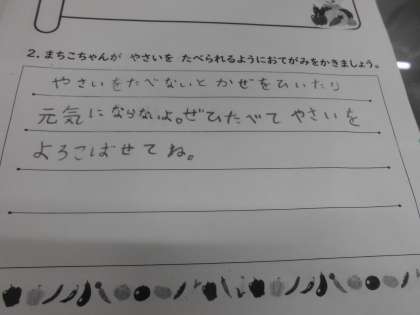 2. まちこちゃんが やさいを たべられるようにおてがみをかきましょう。
やさいをたべないと かぜをひいたり
元気にならないよ。ぜひたべて やさいを
よろこばせてね。